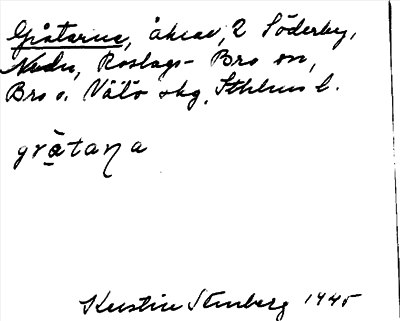 Gråtarne, åkrar, 2 Söderby,
Nedre, Roslags-Bro sn,
Bro o. Vätö skg, Sthlms l.
gràtaɳa
Kerstin Stenberg 1945